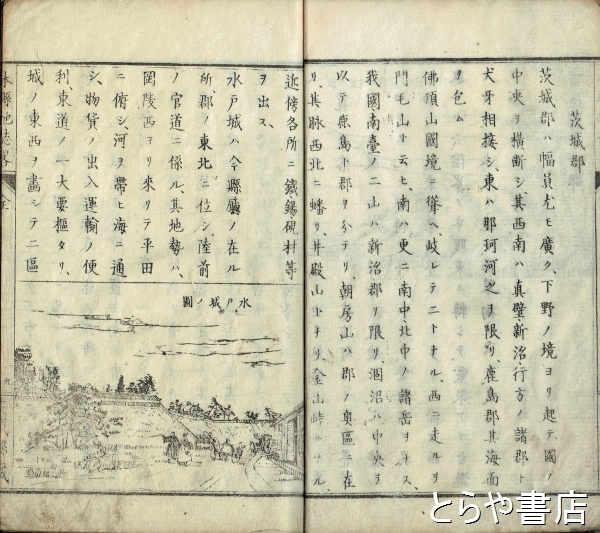 茨城郡
茨城郡ハ幅員尤モ廣ク、下野ノ境ヨリ起テ國ノ
中央ヲ橫斷シ其西南ハ真壁・新治・行方ノ諸郡ト
犬牙相接シ、東ハ那珂河之ヲ限リ、鹿島郡其海面
ヲ包ム
佛頂山國境ニ聳ヘ、岐レテ二トナル、西ニ走ルヲ
門毛山ト云ヒ、南ハ更ニ南中北中ノ諸岳ヲ
我國南臺ノ二山ハ新治郡ヲ限リ、涸沼ハ中央ヲ
以テ鹿島ト郡ヲ分テリ、朝房山ハ郡ノ奥區ニ在
リ、其脉西北ニ蟠リ、井殿山トナリ、金山峠トナル、
近傍各所ニ鐵錫硯材等
ヲ出ス、
水戸城ハ今縣廳ノ在ル
所、郡ノ東北ニ位シ、陸前
ノ官道ニ係ル、其地勢ハ、
岡陵西ヨリ來リテ平田
ニ俯シ、河ヲ帶ヒ海ニ通
シ、物貨ノ出入運輸ノ便
利、東道ノ一大要樞タリ、
城ノ東西ヲ畫シテ二區
水戸城ノ圖
縣地誌畧
全
九
とらや書店